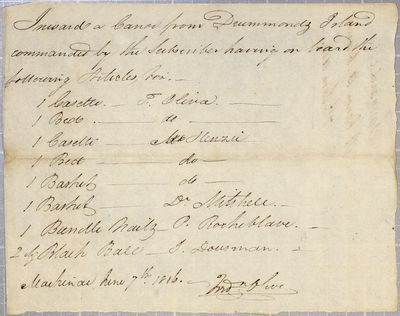 Inwards a Canoe from Drummonds Island
commanded by the Subscriber having on board the
following Articles viz. —
1 Casette — F. Oliva —
1 Bed — do —
1 Casette — McKenzie
1 Bed — do —
1 Basket — do —
1 Basket — Dr. Mitchell —
1 Bundle — P. Rocheblave. —
2 Black Ball — J. Dousman. —
Mackinac June 7th 1816. —